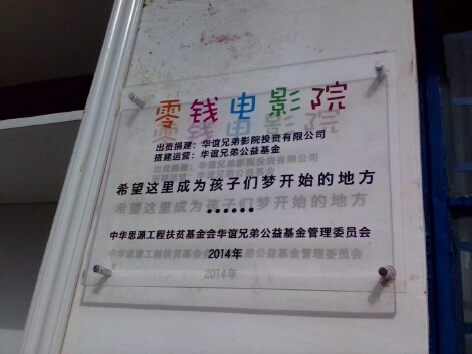 零钱电影院
出资捐建：华谊兄弟影院投资有限公司
搭建运营：华谊兄弟公益基金
希望这里成为孩子们梦开始的地方
••••••
中华思源工程扶贫基金会华谊兄弟公益基金管理委员会
2014年